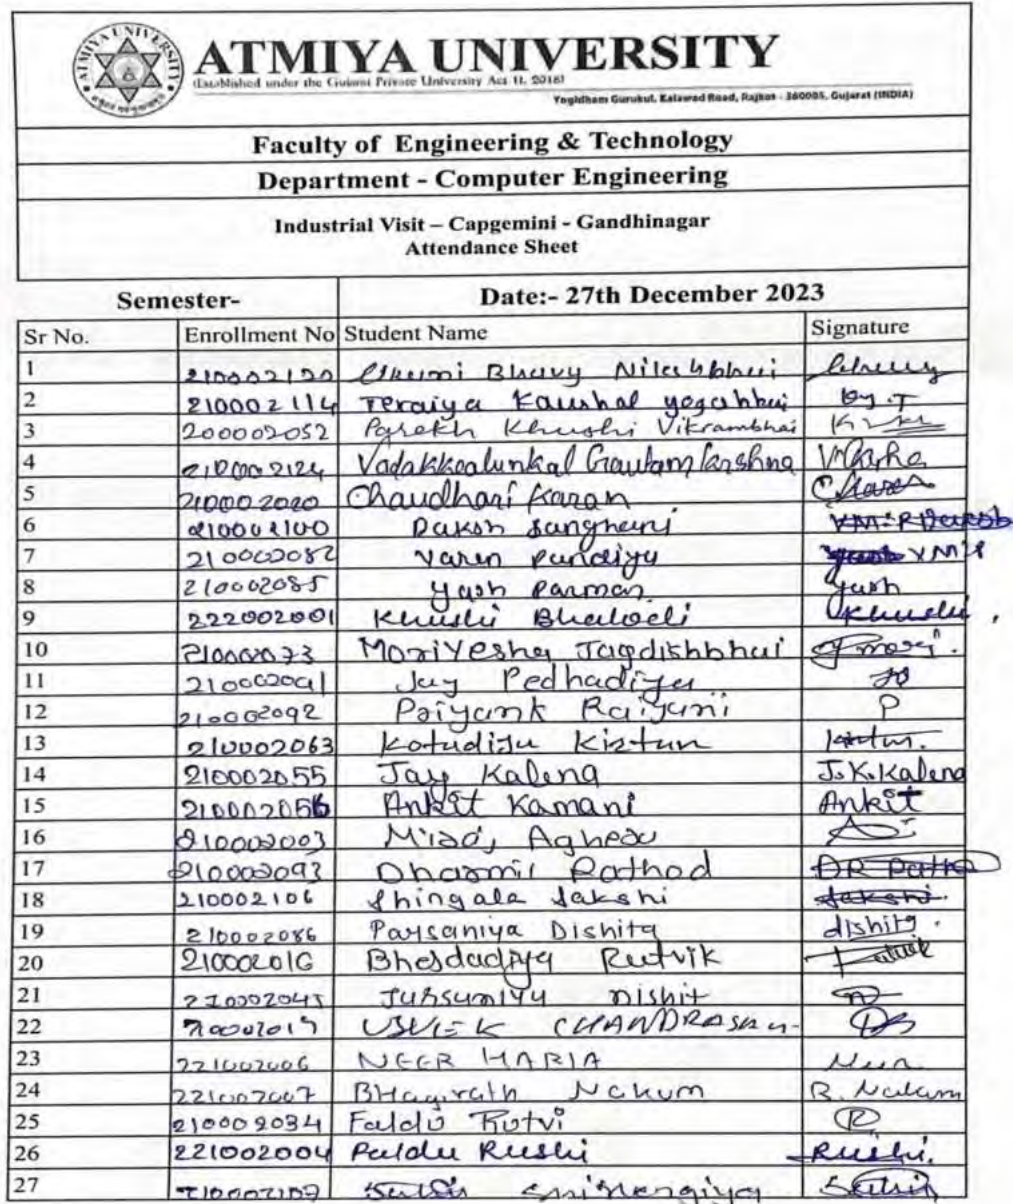 ATMIYA UNIVERSITY
(Established under the Gujarat Private University Act 11, 2018)
Yogidham Gurukul, Kalawad Road, Rajkot - 360005, Gujarat (INDIA)
Faculty of Engineering & Technology
Department - Computer Engineering
Industrial Visit – Capgemini - Gandhinagar
Attendance Sheet
Semester- Date:- 27th December 2023
Sr No. Enrollment No Student Name Signature
1 210002120 Bhavy
2 210002114 Teraiya Kaushal yogeshbhai
3 200002052 Parekh Khushi Vikrambhai
4 210002124 Vadakkoalunkal Gautam krashna
5 210002020 Chaudhari Karan
6 210002100 Daksh Sanghani
7 210002082 Varun Pandiya
8 210002085 yash Parmar yash
9 222002001 Khushi Bhalodi Khushi
10 Moriyesha Jagdishbhai
11 210002091 Jay Pedhadiya
12 210002092 Priyank Raiyani P
13 210002063 Kotadiya Kistun
14 210002055 Jay Kalena J.K.Kalena
15 210002056 Ankit Kamani Ankit
16 210002003
17 210002093 Dharmil Rathod
18 210002106 Shingala Sakshi Sakshi
19 210002086 Parsaniya Dishita dishita
20 210002016 Bhesdadiya Rutvik
21 Nishit
22
23 221002006 NEER HARIA
24 221002007 Bhagirath Nakum B. Nakum
25 210002034 Faldu Rutvi R
26 221002004 Paldu Rushi Rushi.
27